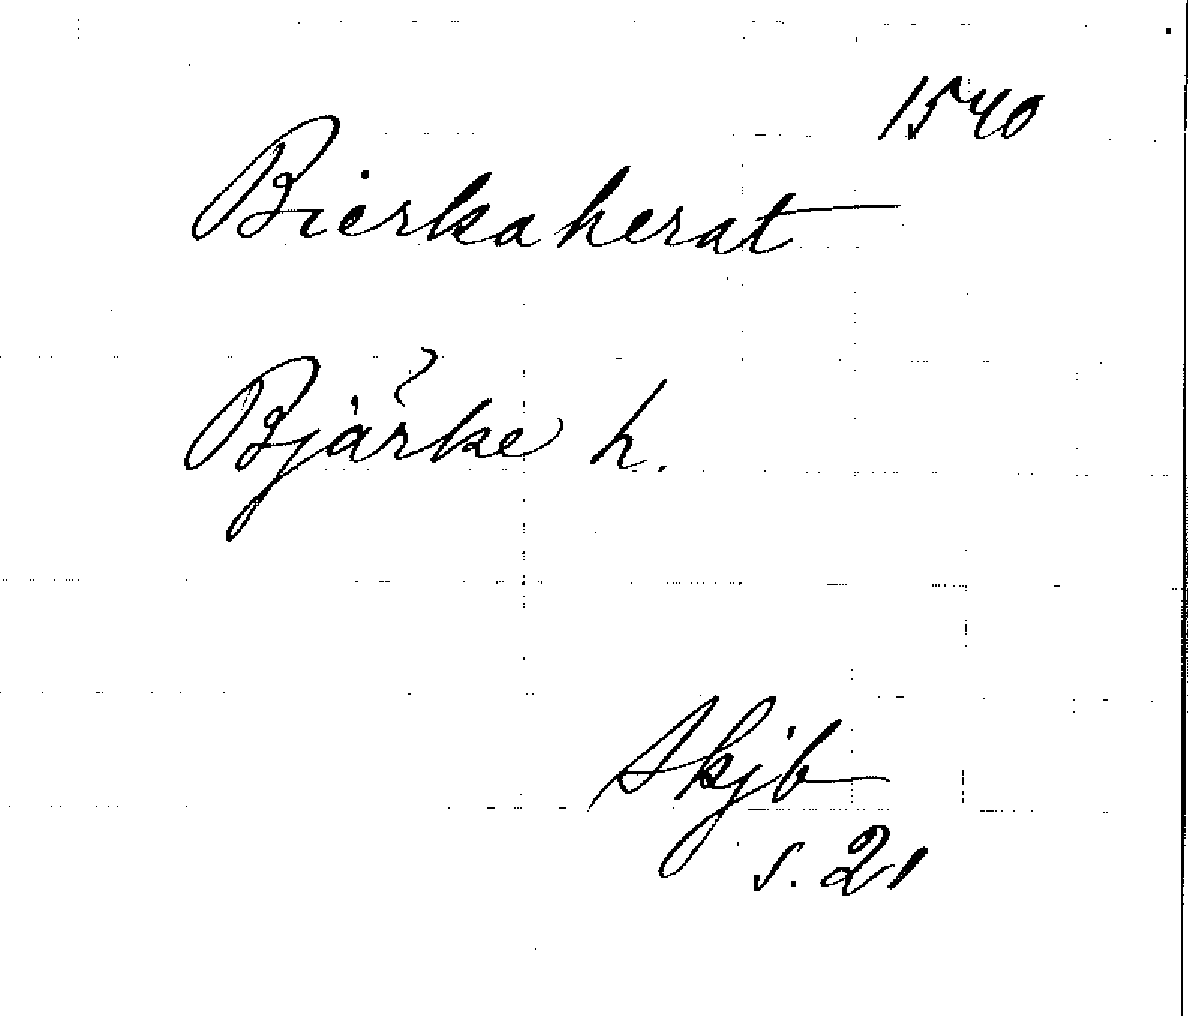 1540
Bierkaherat
Bjärke h.
Skjb
s. 21